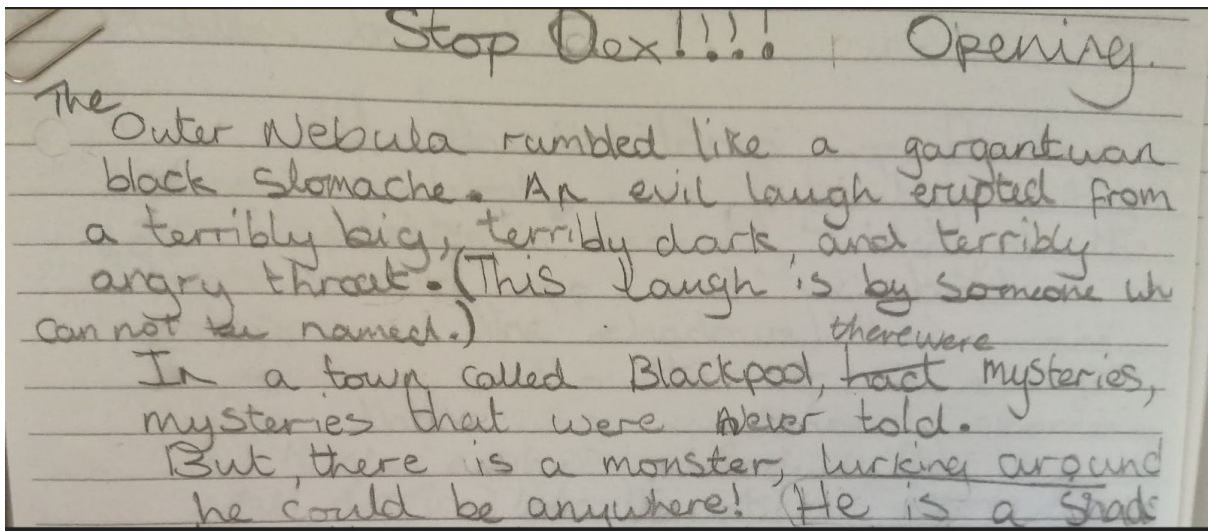 Stop Dex!!!! Opening.
The Outer Nebula rumbled like a gargantuan
black stomache. An evil laugh erupted from
a terribly big, terribly dark, and terribly
angry throat. (This laugh is by someone wh
can not be named.)
there were
In a town called Blackpool, had mysteries,
mysteries that were Never told.
But, there is a monster, lurking around
he could be anywhere! (He is a shado